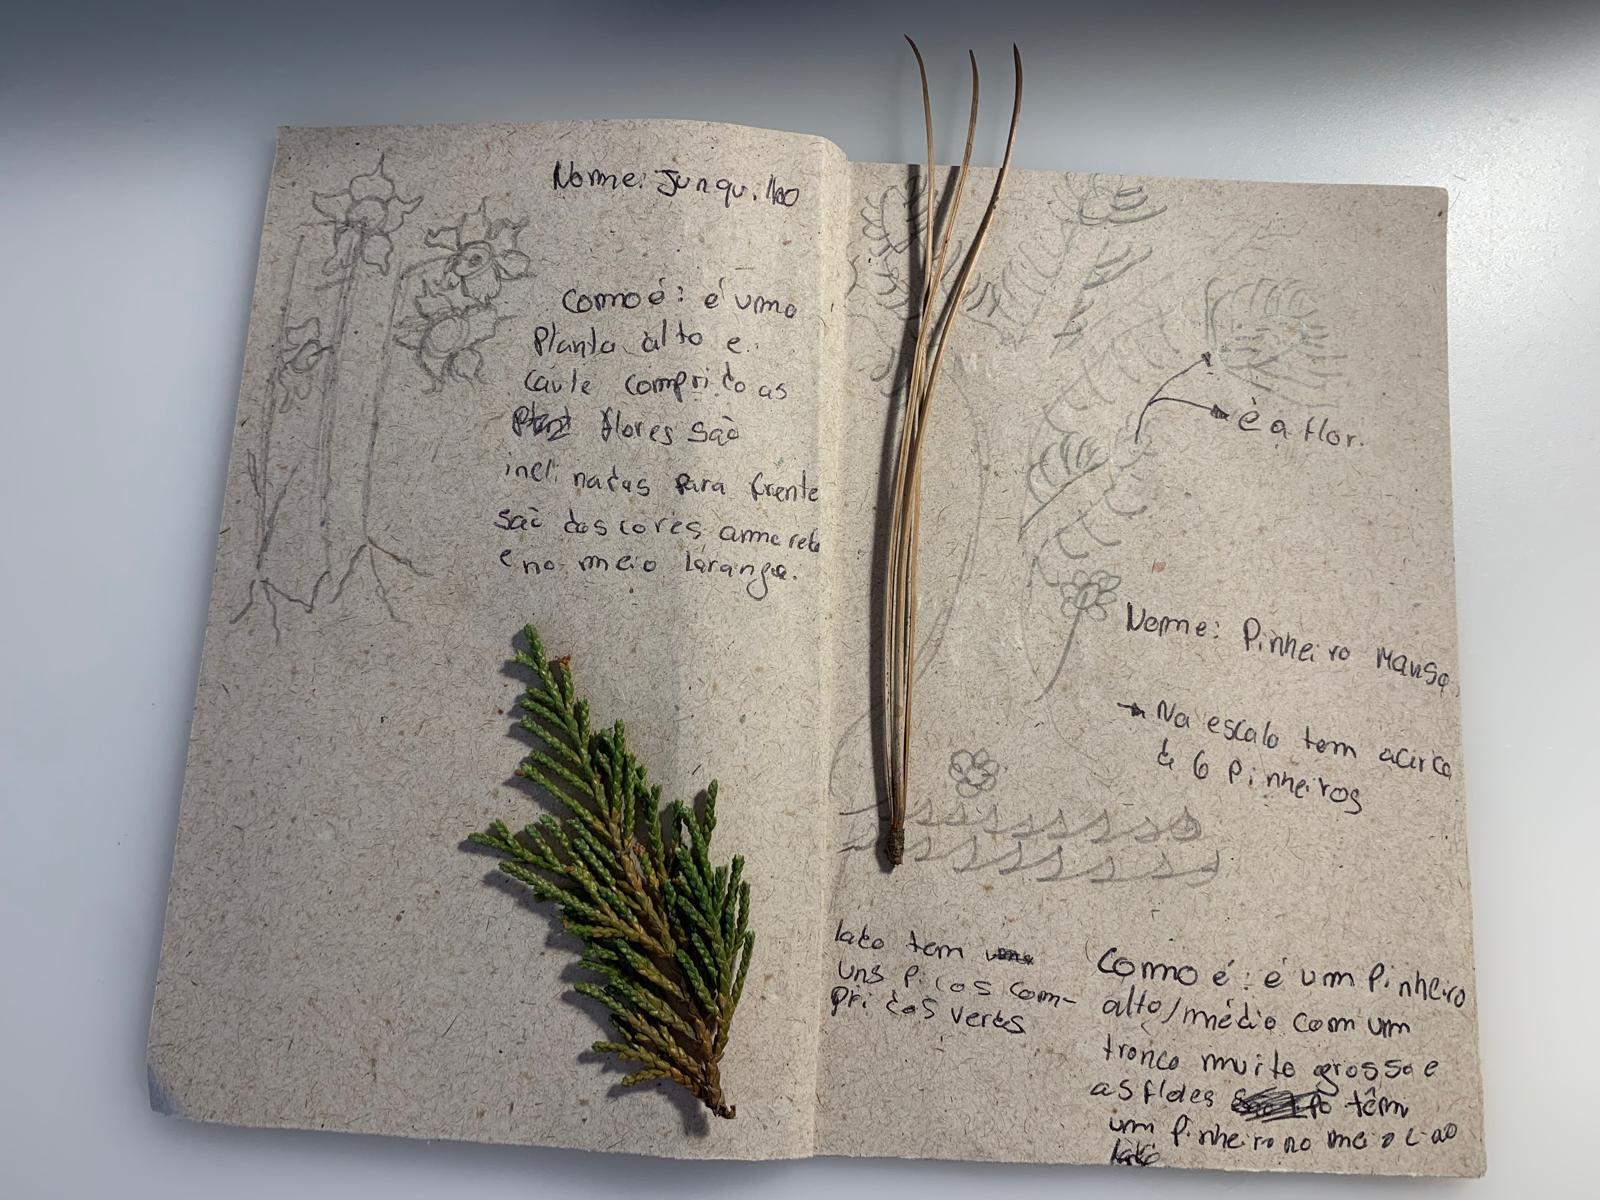 Nome: Junquilho
Como é: é uma
Planta alto e
caule comprido as
flores são
inclinadas para frente
são das cores amarela
e no meio laranga.
é a flor.
Nome: Pinheiro Manso
→ Na escala tem acirca
de 6 Pinheiros
Como é: é um Pinheiro
alto/médio com um
tronco muito grosso e
as flores têm
um Pinheiro no meio e ao
lado tem
uns picos com-
pridos verdes